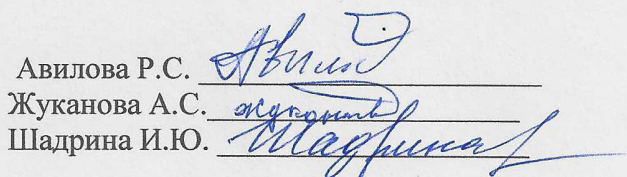 Авилова Р.С. Авило
Жуканова А.С. Жуканова
Шадрина И.Ю. Шадрина